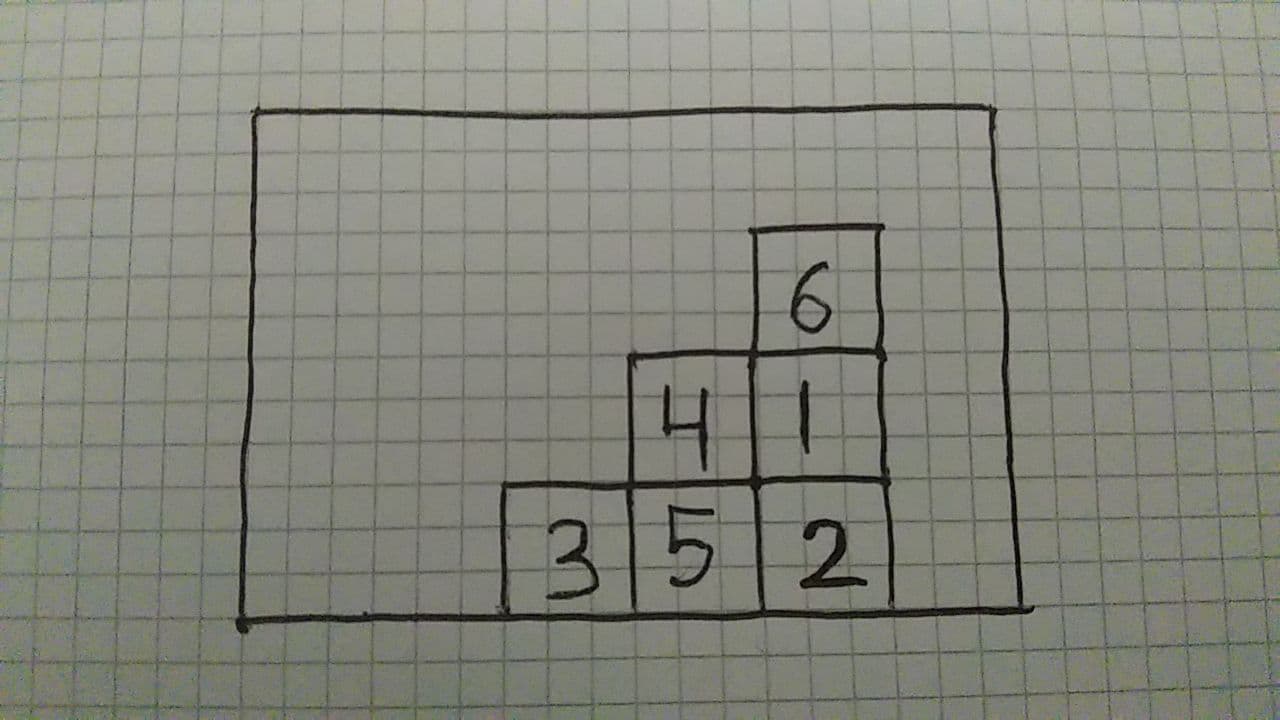 6
4 1
3 5 2